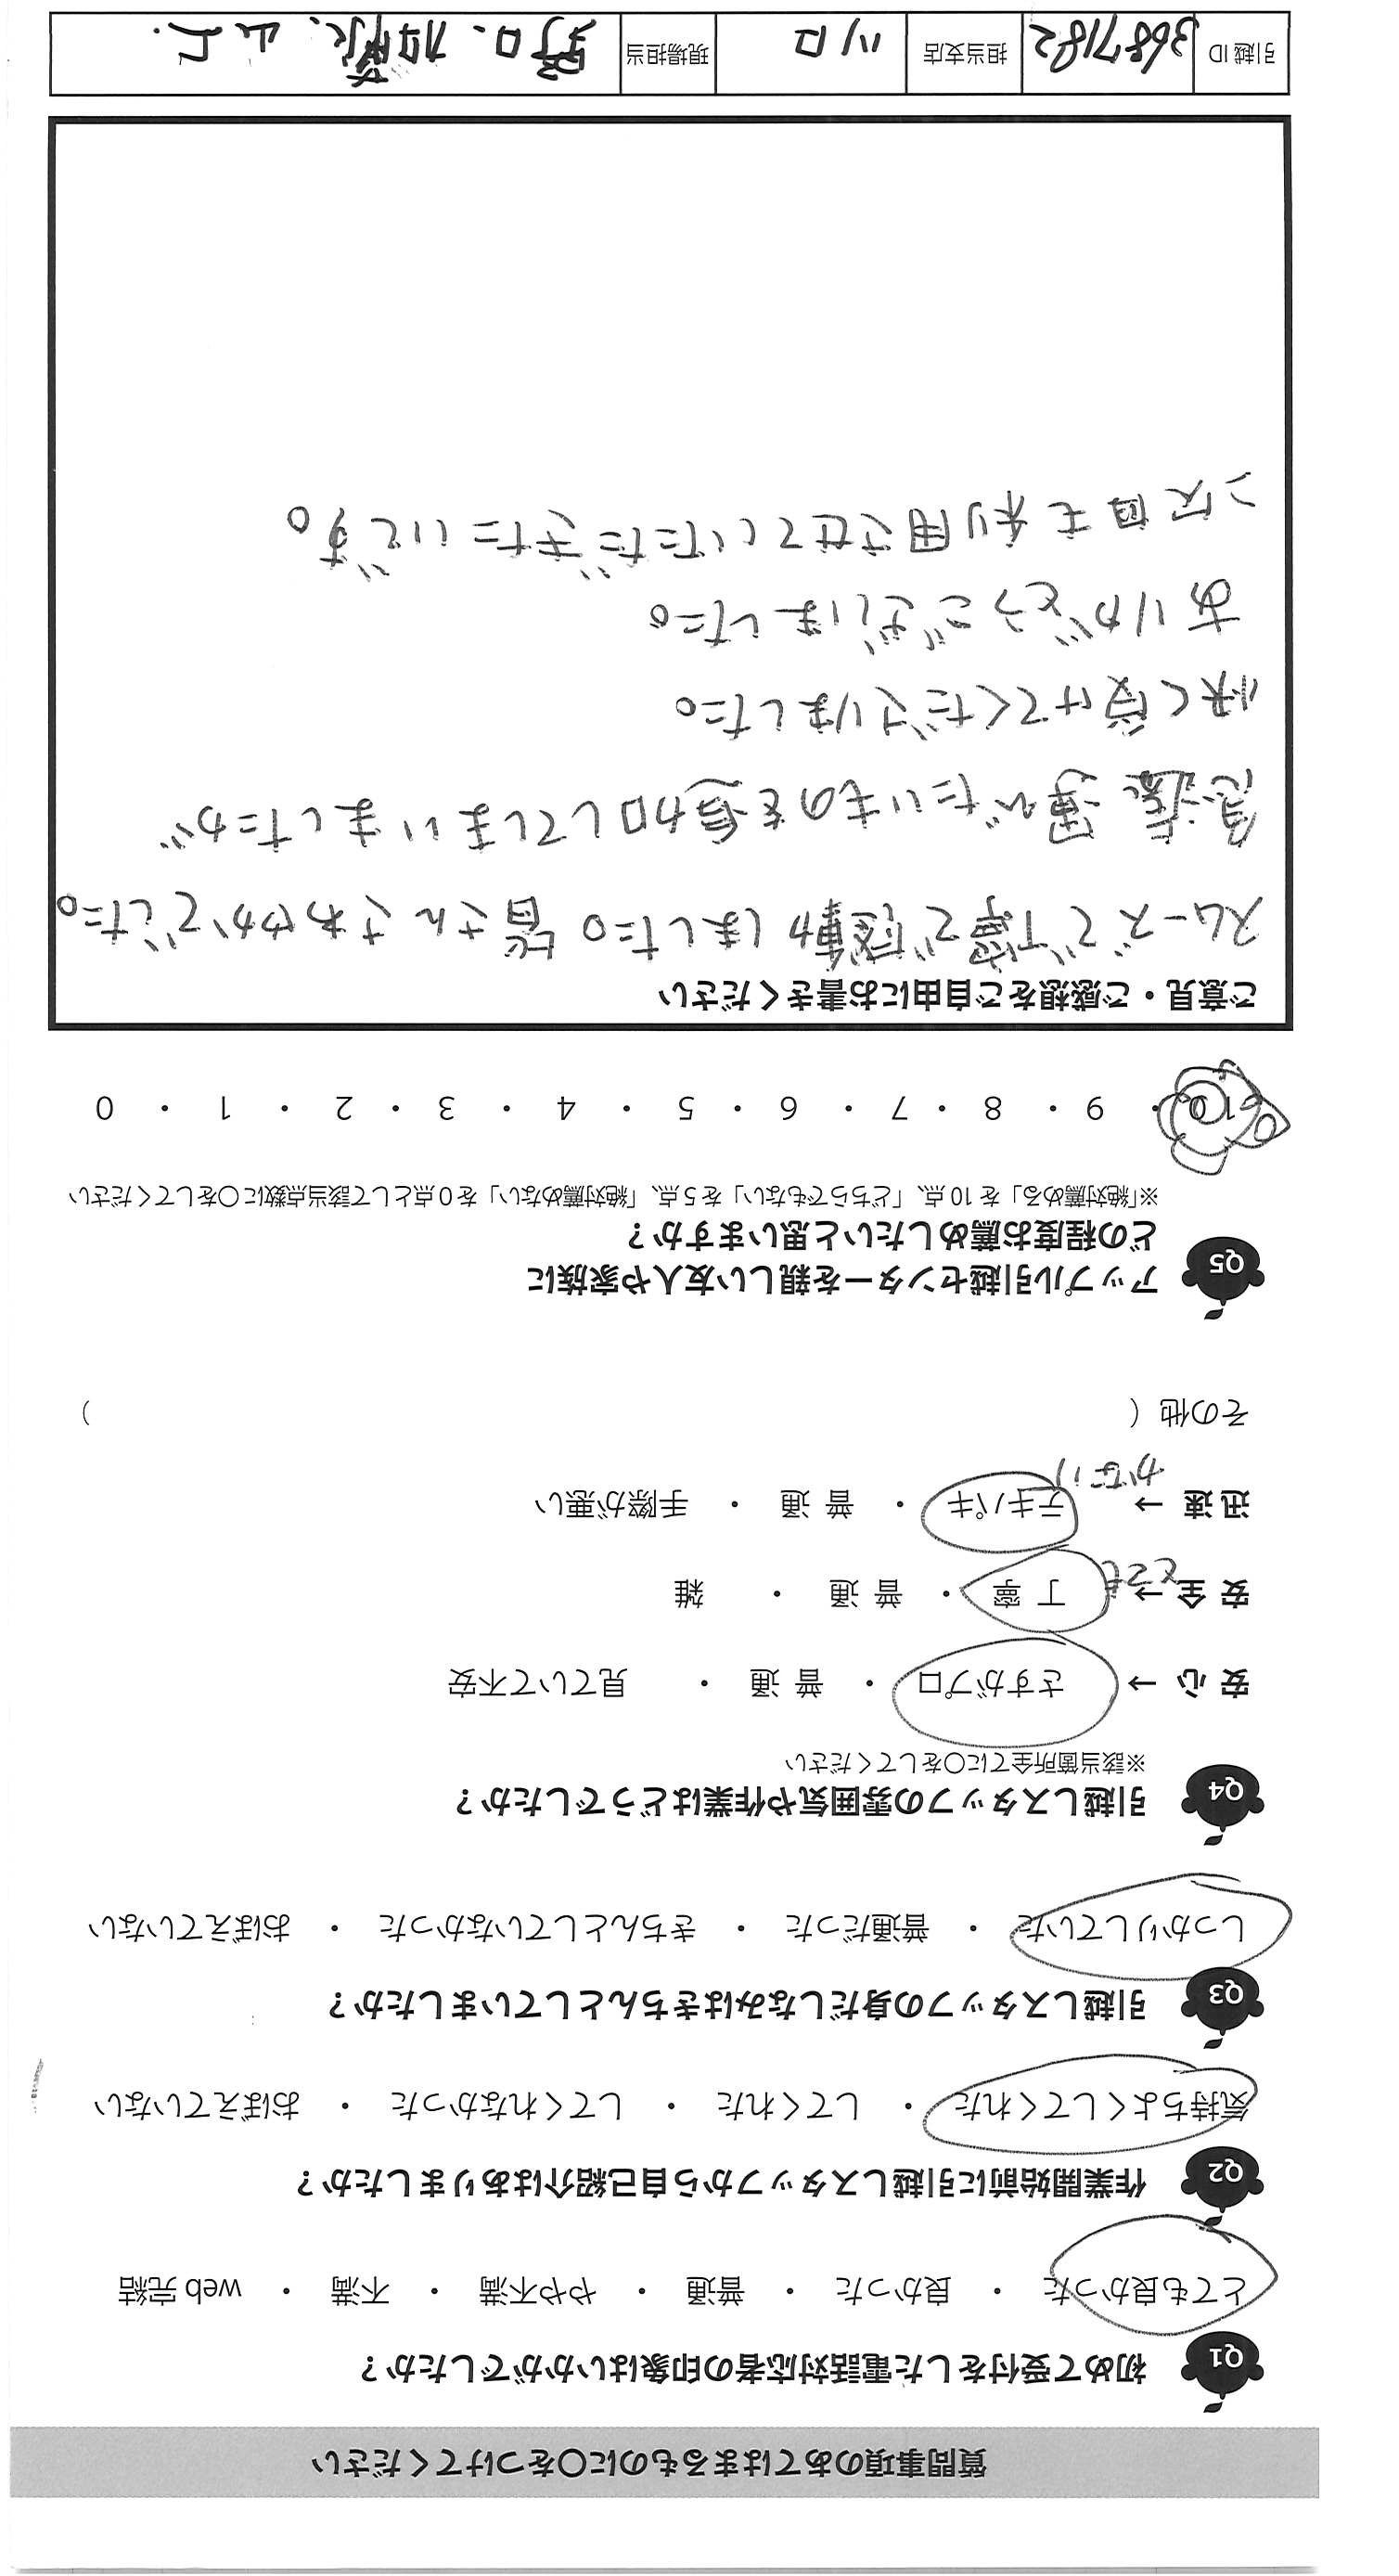 質問事項のあてはまるものに〇をつけてください
Q1 初めて受付をした電話対応者の印象はいかがでしたか？
とても良かった ・ 良かった ・ 普通 ・ やや不満 ・ 不満 ・ web 完結
Q2 作業開始前に引越しスタッフから自己紹介はありましたか？
気持ちよくしてくれた ・ してくれた ・ してくれなかった ・ おぼえていない
Q3 引越しスタッフの身だしなみはきちんとしていましたか？
しっかりしていた ・ 普通だった ・ きちんとしていなかった ・ おぼえていない
Q4 引越しスタッフの雰囲気や作業はどうでしたか？
※該当箇所全てに〇をしてください
安 心 → さすがプロ ・ 普 通 ・ 見ていて不安
安 全 → とても 丁 寧 ・ 普 通 ・ 雑
迅 速 → かなり テキパキ ・ 普 通 ・ 手際が悪い
その他（ ）
Q5 アップル引越センターを親しい友人や家族に
どの程度お薦めしたいと思いますか？
※「絶対薦める」を 10 点、「どちらでもない」を 5 点、「絶対薦めない」を 0 点として該当点数に〇をしてください
10 ・ 9 ・ 8 ・ 7 ・ 6 ・ 5 ・ 4 ・ 3 ・ 2 ・ 1 ・ 0
ご意見・ご感想をご自由にお書きください
スムーズで丁寧で感動しました。皆さんさわやかでした。
急遽運びたいものを追加してしまいましたが
快く受けてくださりました。
ありがとうございました。
次回も利用させていただきたいです。
引越 ID 3687182 担当支店 ツロ 現場担当 野口、加藤、山上.